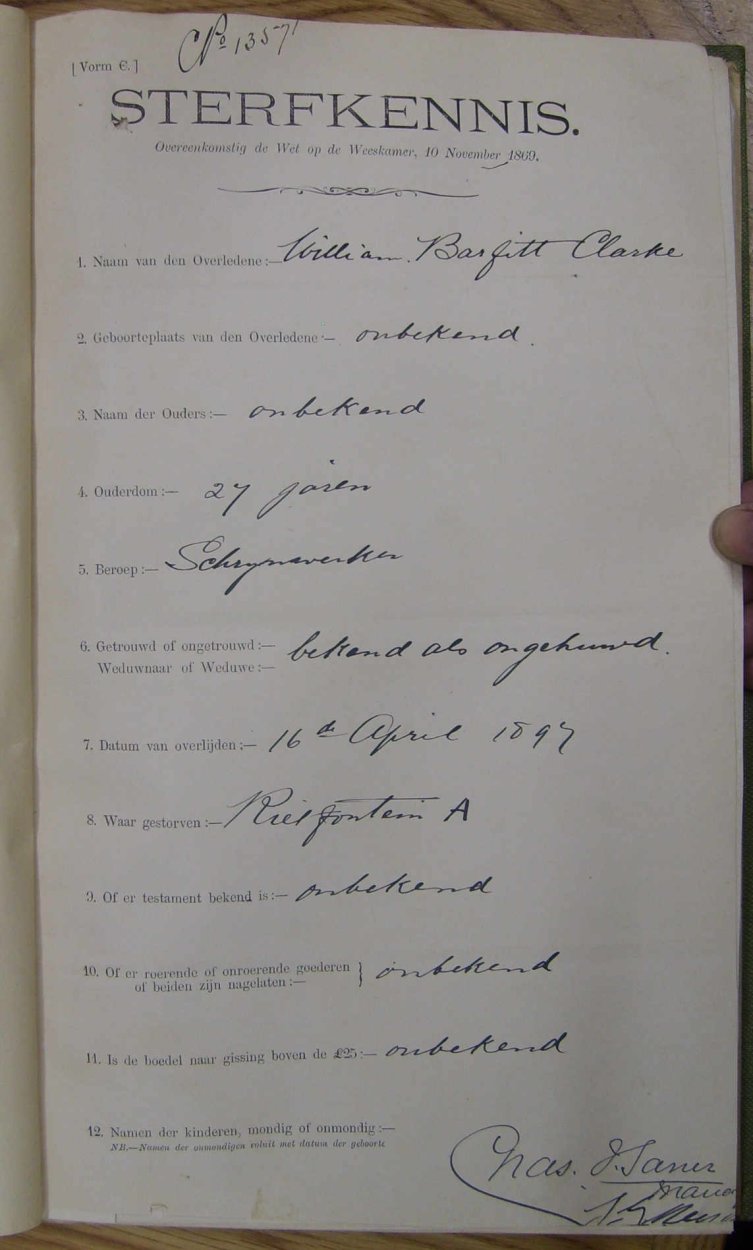 No 13571
[Vorm C.]
STERFKENNIS.
Overeenkomstig de Wet op de Weeskamer, 10 November 1869.
1. Naam van den Overledene:— William Barfitt Clarke
2. Geboorteplaats van den Overledene:— onbekend.
3. Naam der Ouders:— onbekend
4. Ouderdom:— 27 jaren
5. Beroep:— Schrynwerker
6. Getrouwd of ongetrouwd:— bekend als ongehuwd.
Weduwnaar of Weduwe:—
7. Datum van overlijden:— 16de April 1897
8. Waar gestorven:— Rietfontein A
9. Of er testament bekend is:— onbekend
10. Of er roerende of onroerende goederen } onbekend
of beiden zijn nagelaten:—
11. Is de boedel naar gissing boven de £25:— onbekend
12. Namen der kinderen, mondig of onmondig:—
NB.—Namen der onmondigen voluit met datum der geboorte
Chas.